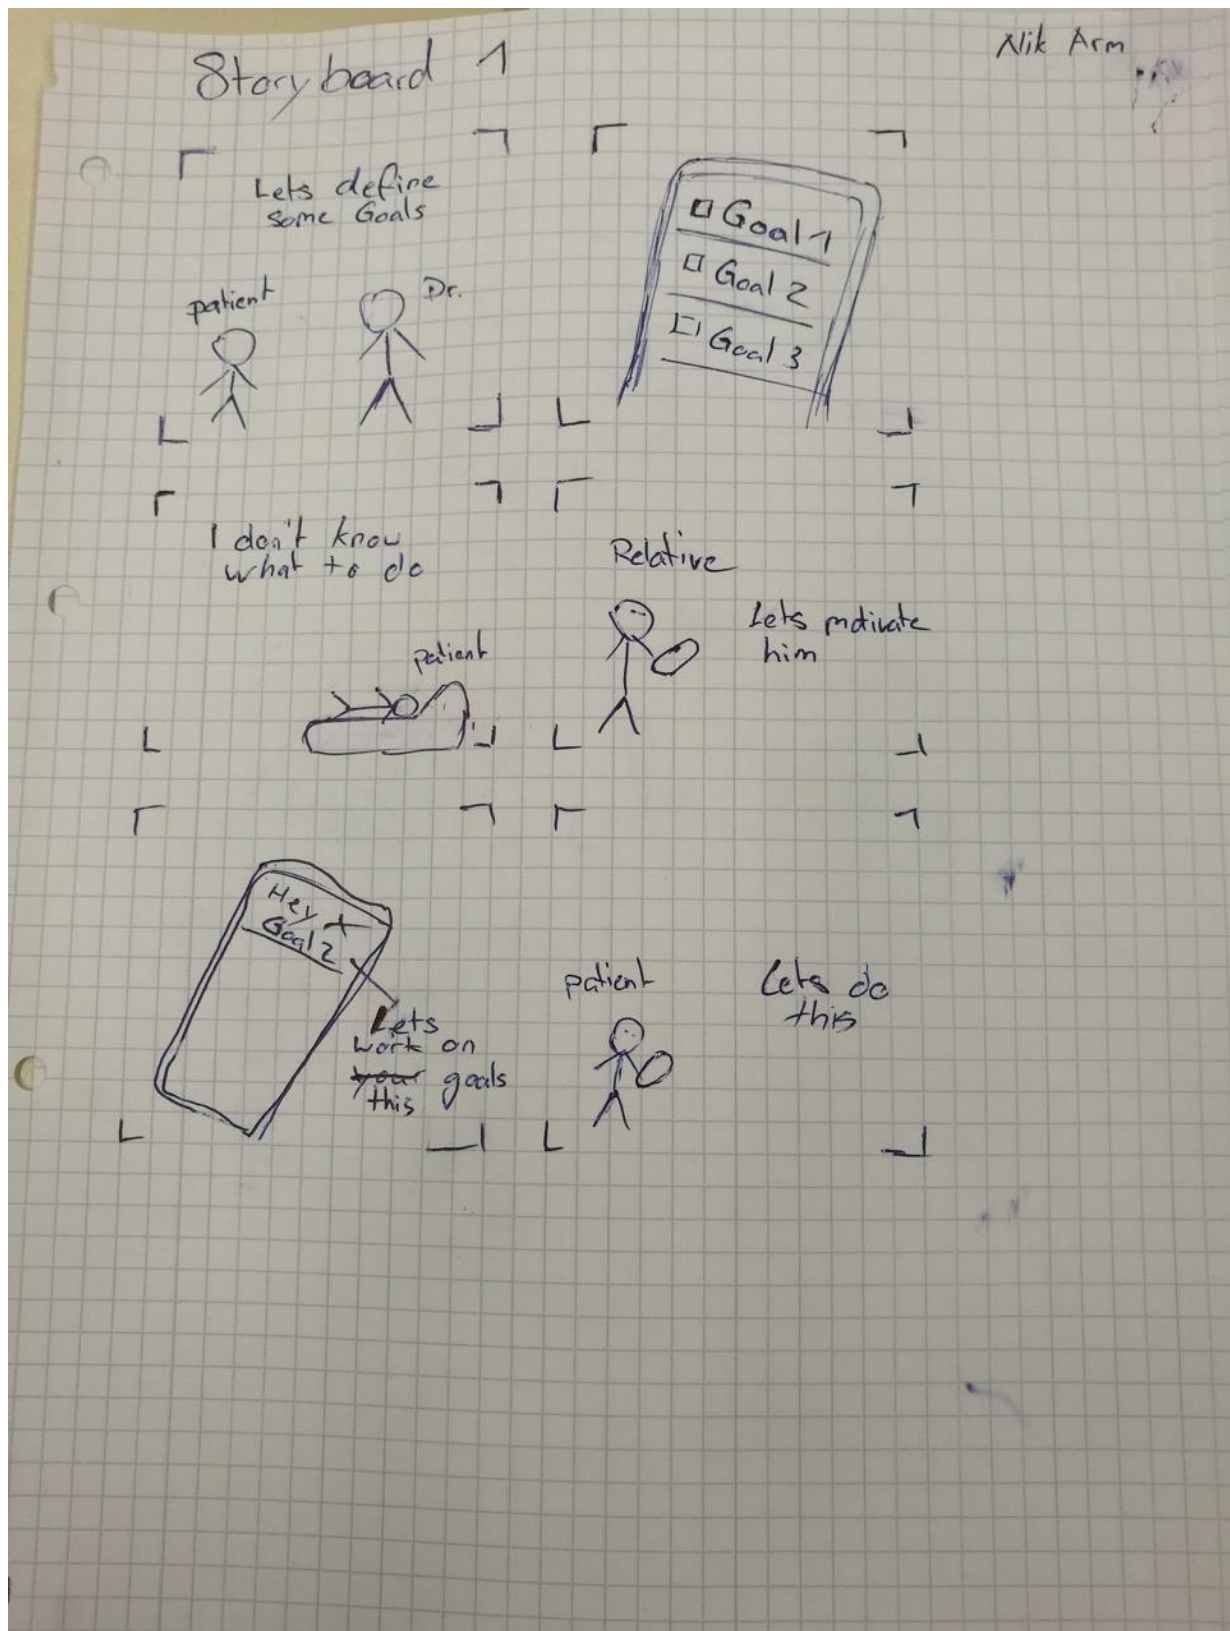 Storyboard 1
Nik Arm
Lets define
some Goals
patient
Dr.
Goal 1
Goal 2
Goal 3
I don't know
what to do
patient
Relative
Lets motivate
him
Hey
Goal 2
Lets
work on
your goals
this
patient
Lets do
this